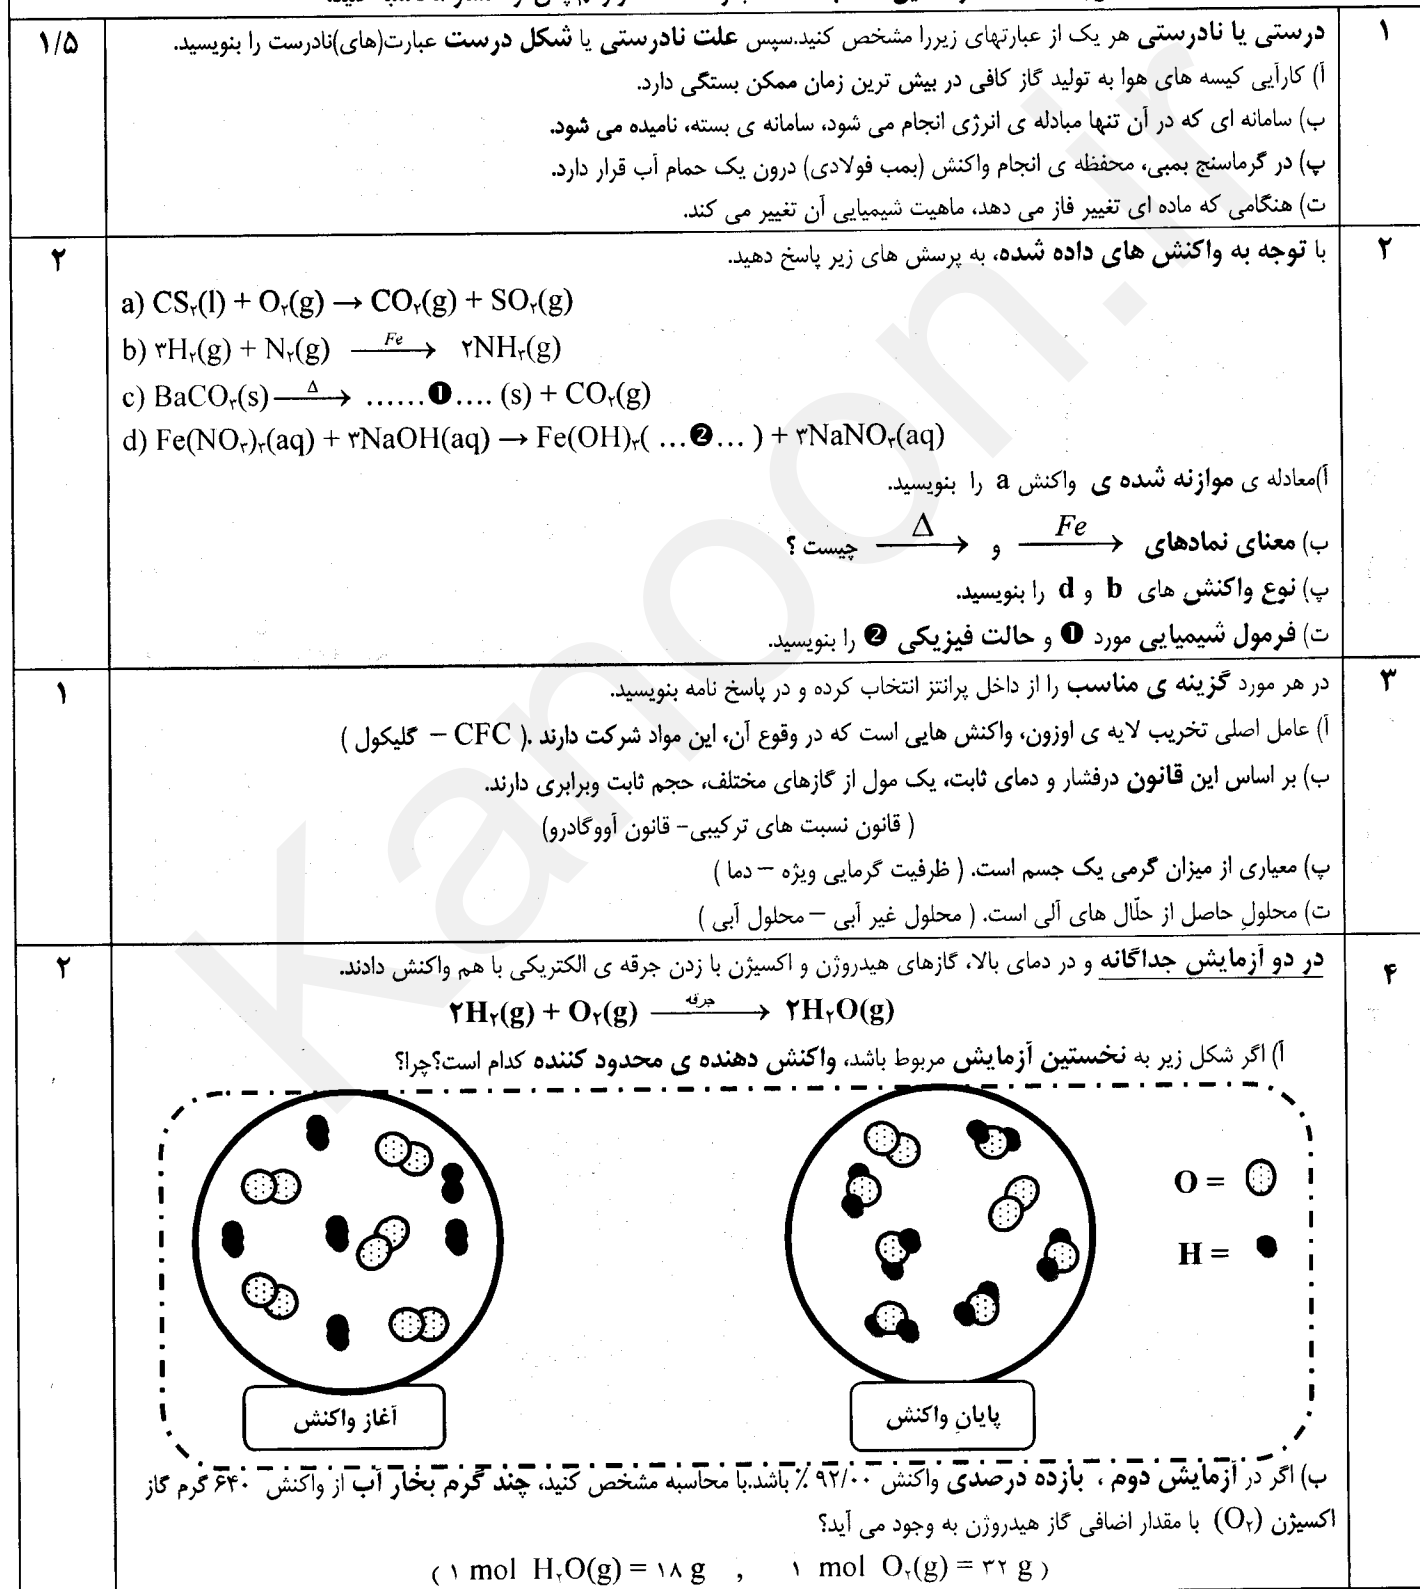 ۱
درستی یا نادرستی هر یک از عبارتهای زیررا مشخص کنید.سپس علت نادرستی یا شکل درست عبارت(های)نادرست را بنویسید.
۱/۵
آ) کارآیی کیسه های هوا به تولید گاز کافی در بیش ترین زمان ممکن بستگی دارد.
ب) سامانه ای که در آن تنها مبادله ی انرژی انجام می شود، سامانه ی بسته، نامیده می شود.
پ) در گرماسنج بمبی، محفظه ی انجام واکنش (بمب فولادی) درون یک حمام آب قرار دارد.
ت) هنگامی که ماده ای تغییر فاز می دهد، ماهیت شیمیایی آن تغییر می کند.
۲
با توجه به واکنش های داده شده، به پرسش های زیر پاسخ دهید.
۲
a) CS۲(l) + O۲(g) → CO۲(g) + SO۲(g)
b) ۳H۲(g) + N۲(g) —Fe→ ۲NH۳(g)
c) BaCO۳(s) —Δ→ ......❶.... (s) + CO۲(g)
d) Fe(NO۳)۳(aq) + ۳NaOH(aq) → Fe(OH)۳( ...❷... ) + ۳NaNO۳(aq)
آ)معادله ی موازنه شده ی واکنش a را بنویسید.
ب) معنای نمادهای —Fe→ و —Δ→ چیست ؟
پ) نوع واکنش های b و d را بنویسید.
ت) فرمول شیمیایی مورد ❶ و حالت فیزیکی ❷ را بنویسید.
۳
در هر مورد گزینه ی مناسب را از داخل پرانتز انتخاب کرده و در پاسخ نامه بنویسید.
۱
آ) عامل اصلی تخریب لایه ی اوزون، واکنش هایی است که در وقوع آن، این مواد شرکت دارند .( CFC – گلیکول )
ب) بر اساس این قانون درفشار و دمای ثابت، یک مول از گازهای مختلف، حجم ثابت وبرابری دارند.
( قانون نسبت های ترکیبی– قانون آووگادرو)
پ) معیاری از میزان گرمی یک جسم است. ( ظرفیت گرمایی ویژه – دما )
ت) محلولِ حاصل از حلّال های آلی است. ( محلول غیر آبی – محلول آبی )
۴
در دو آزمایش جداگانه و در دمای بالا، گازهای هیدروژن و اکسیژن با زدن جرقه ی الکتریکی با هم واکنش دادند.
۲
۲H۲(g) + O۲(g) —جرقه→ ۲H۲O(g)
آ) اگر شکل زیر به نخستین آزمایش مربوط باشد، واکنش دهنده ی محدود کننده کدام است؟چرا؟
O =
H =
آغاز واکنش
پایانِ واکنش
ب) اگر در آزمایش دوم ، بازده درصدی واکنش ۹۲/۰۰ ٪ باشد.با محاسبه مشخص کنید، چند گرم بخار آب از واکنش ۶۴۰ گرم گاز
اکسیژن (O۲) با مقدار اضافی گاز هیدروژن به وجود می آید؟
( ۱ mol H۲O(g) = ۱۸ g , ۱ mol O۲(g) = ۳۲ g )
Kanoon.ir